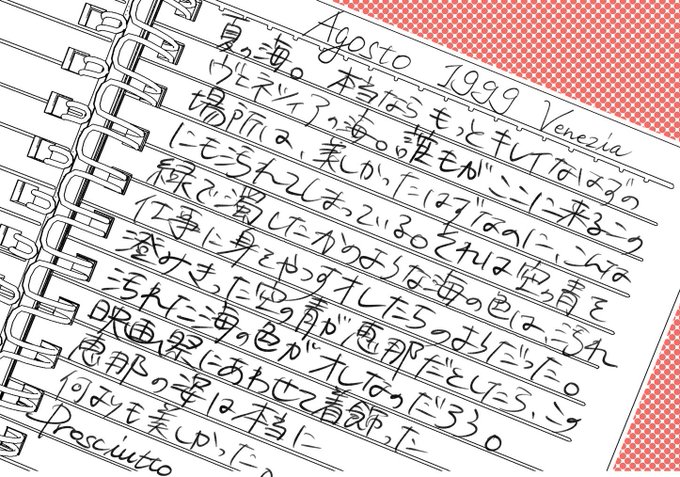 Agosto 1999 Venezia
夏の海。本当ならもっとキレイなはずの
ヴェネツィアの海。誰もがここに来るこの
場所は、美しかったはずなのに、こんな
にも汚れてしまっている。それは空の青を
緑で濁したかのような海の色は、汚れ
仕事に身をやつすオレたちのようだった。
澄みきった空の青が恵那だとしたら、この
汚れた海の色がオレなのだろう。
映画祭にあわせて着飾った
恵那の姿は本当に
何よりも美しかった
Prosciutto